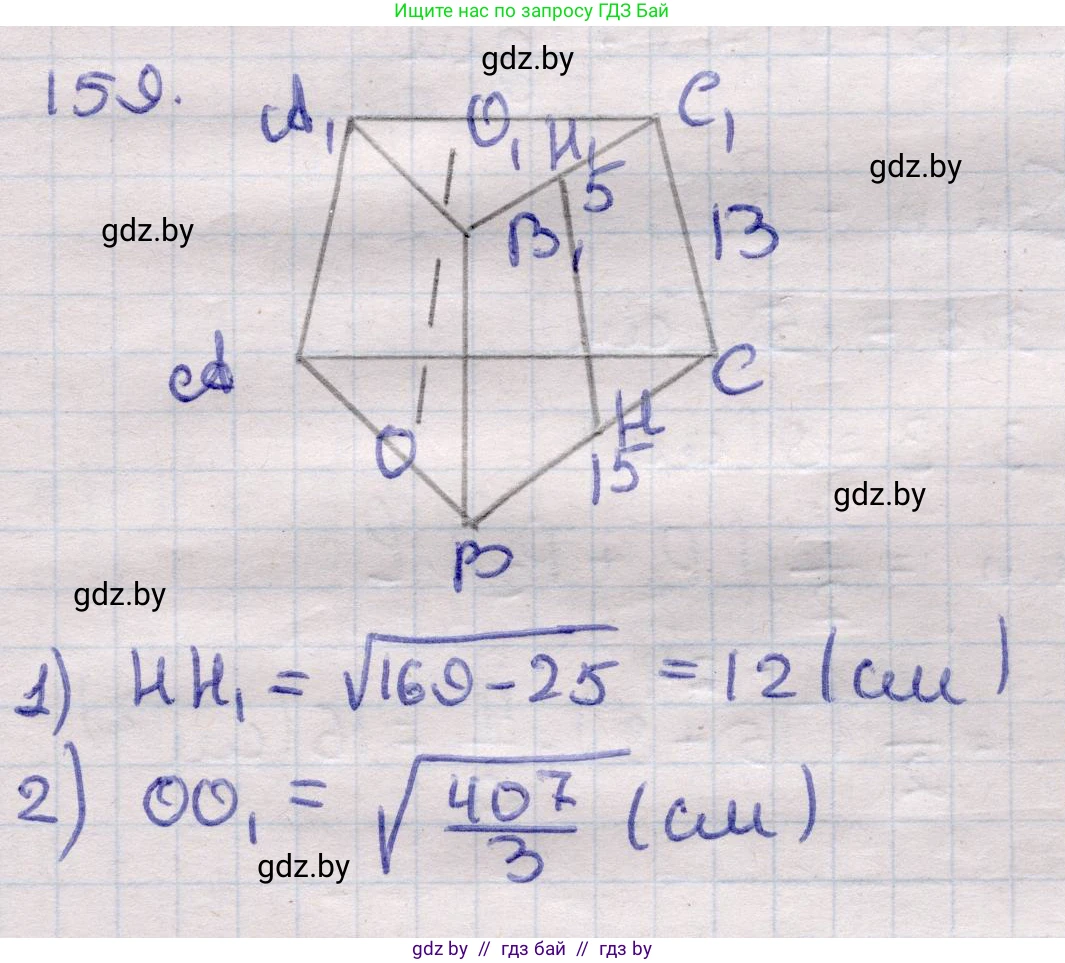 Ищите нас по запросу ГДЗ Бай
gdz.by
159.
A₁ O₁ H₁ C₁
gdz.by
5
gdz.by
B₁ 13
A C
O H
15
gdz.by
B
gdz.by
1) HH₁ = √169-25 = 12 (см)
2) OO₁ = √407/3 (см)
gdz.by
gdz by // гдз бай // гдз by